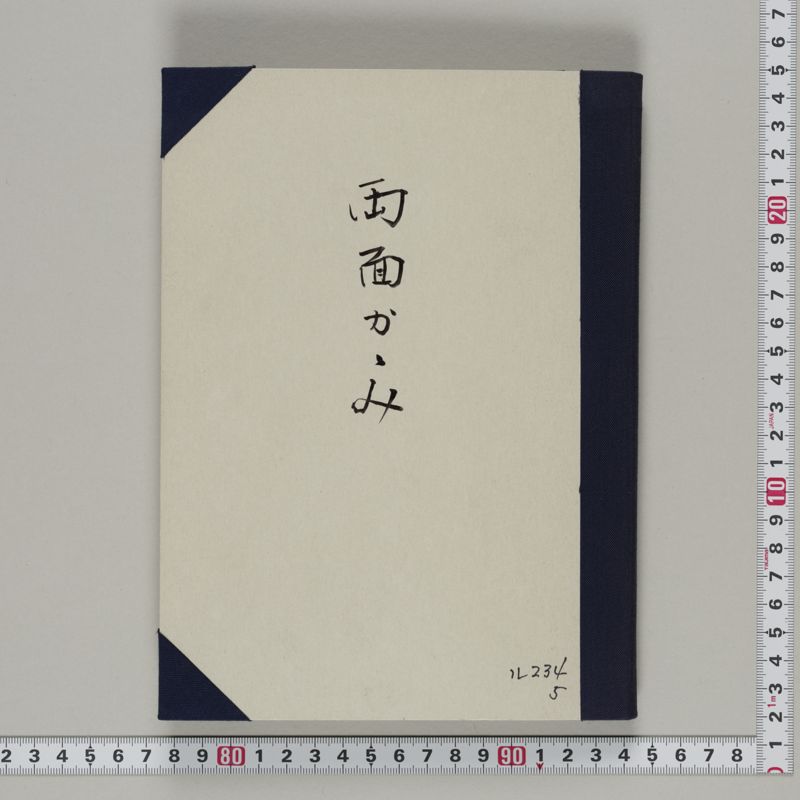 両面かゝみ
ル234
5
2 3 4 5 6 7 8 9 80 1 2 3 4 5 6 7 8 9 90 1 2 3 4 5 6 7 8
7 6 5 4 3 2 1 20 9 8 7 6 5 4 3 2 1 10 9 8 7 6 5 4 3 2 1
JAPAN
1m